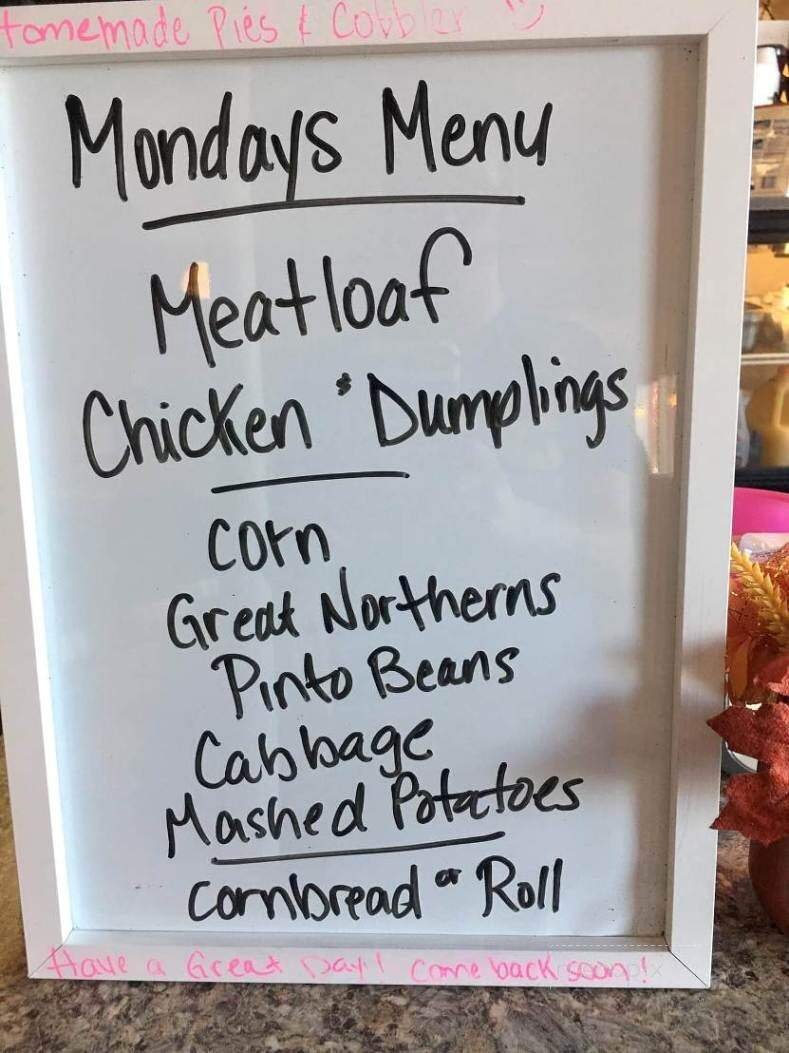 Homemade Pies & Cobbler
Mondays Menu
Meatloaf
Chicken & Dumplings
Corn
Great Northerns
Pinto Beans
Cabbage
Mashed Potatoes
Cornbread or Roll
Have a Great Day! Come back soon!